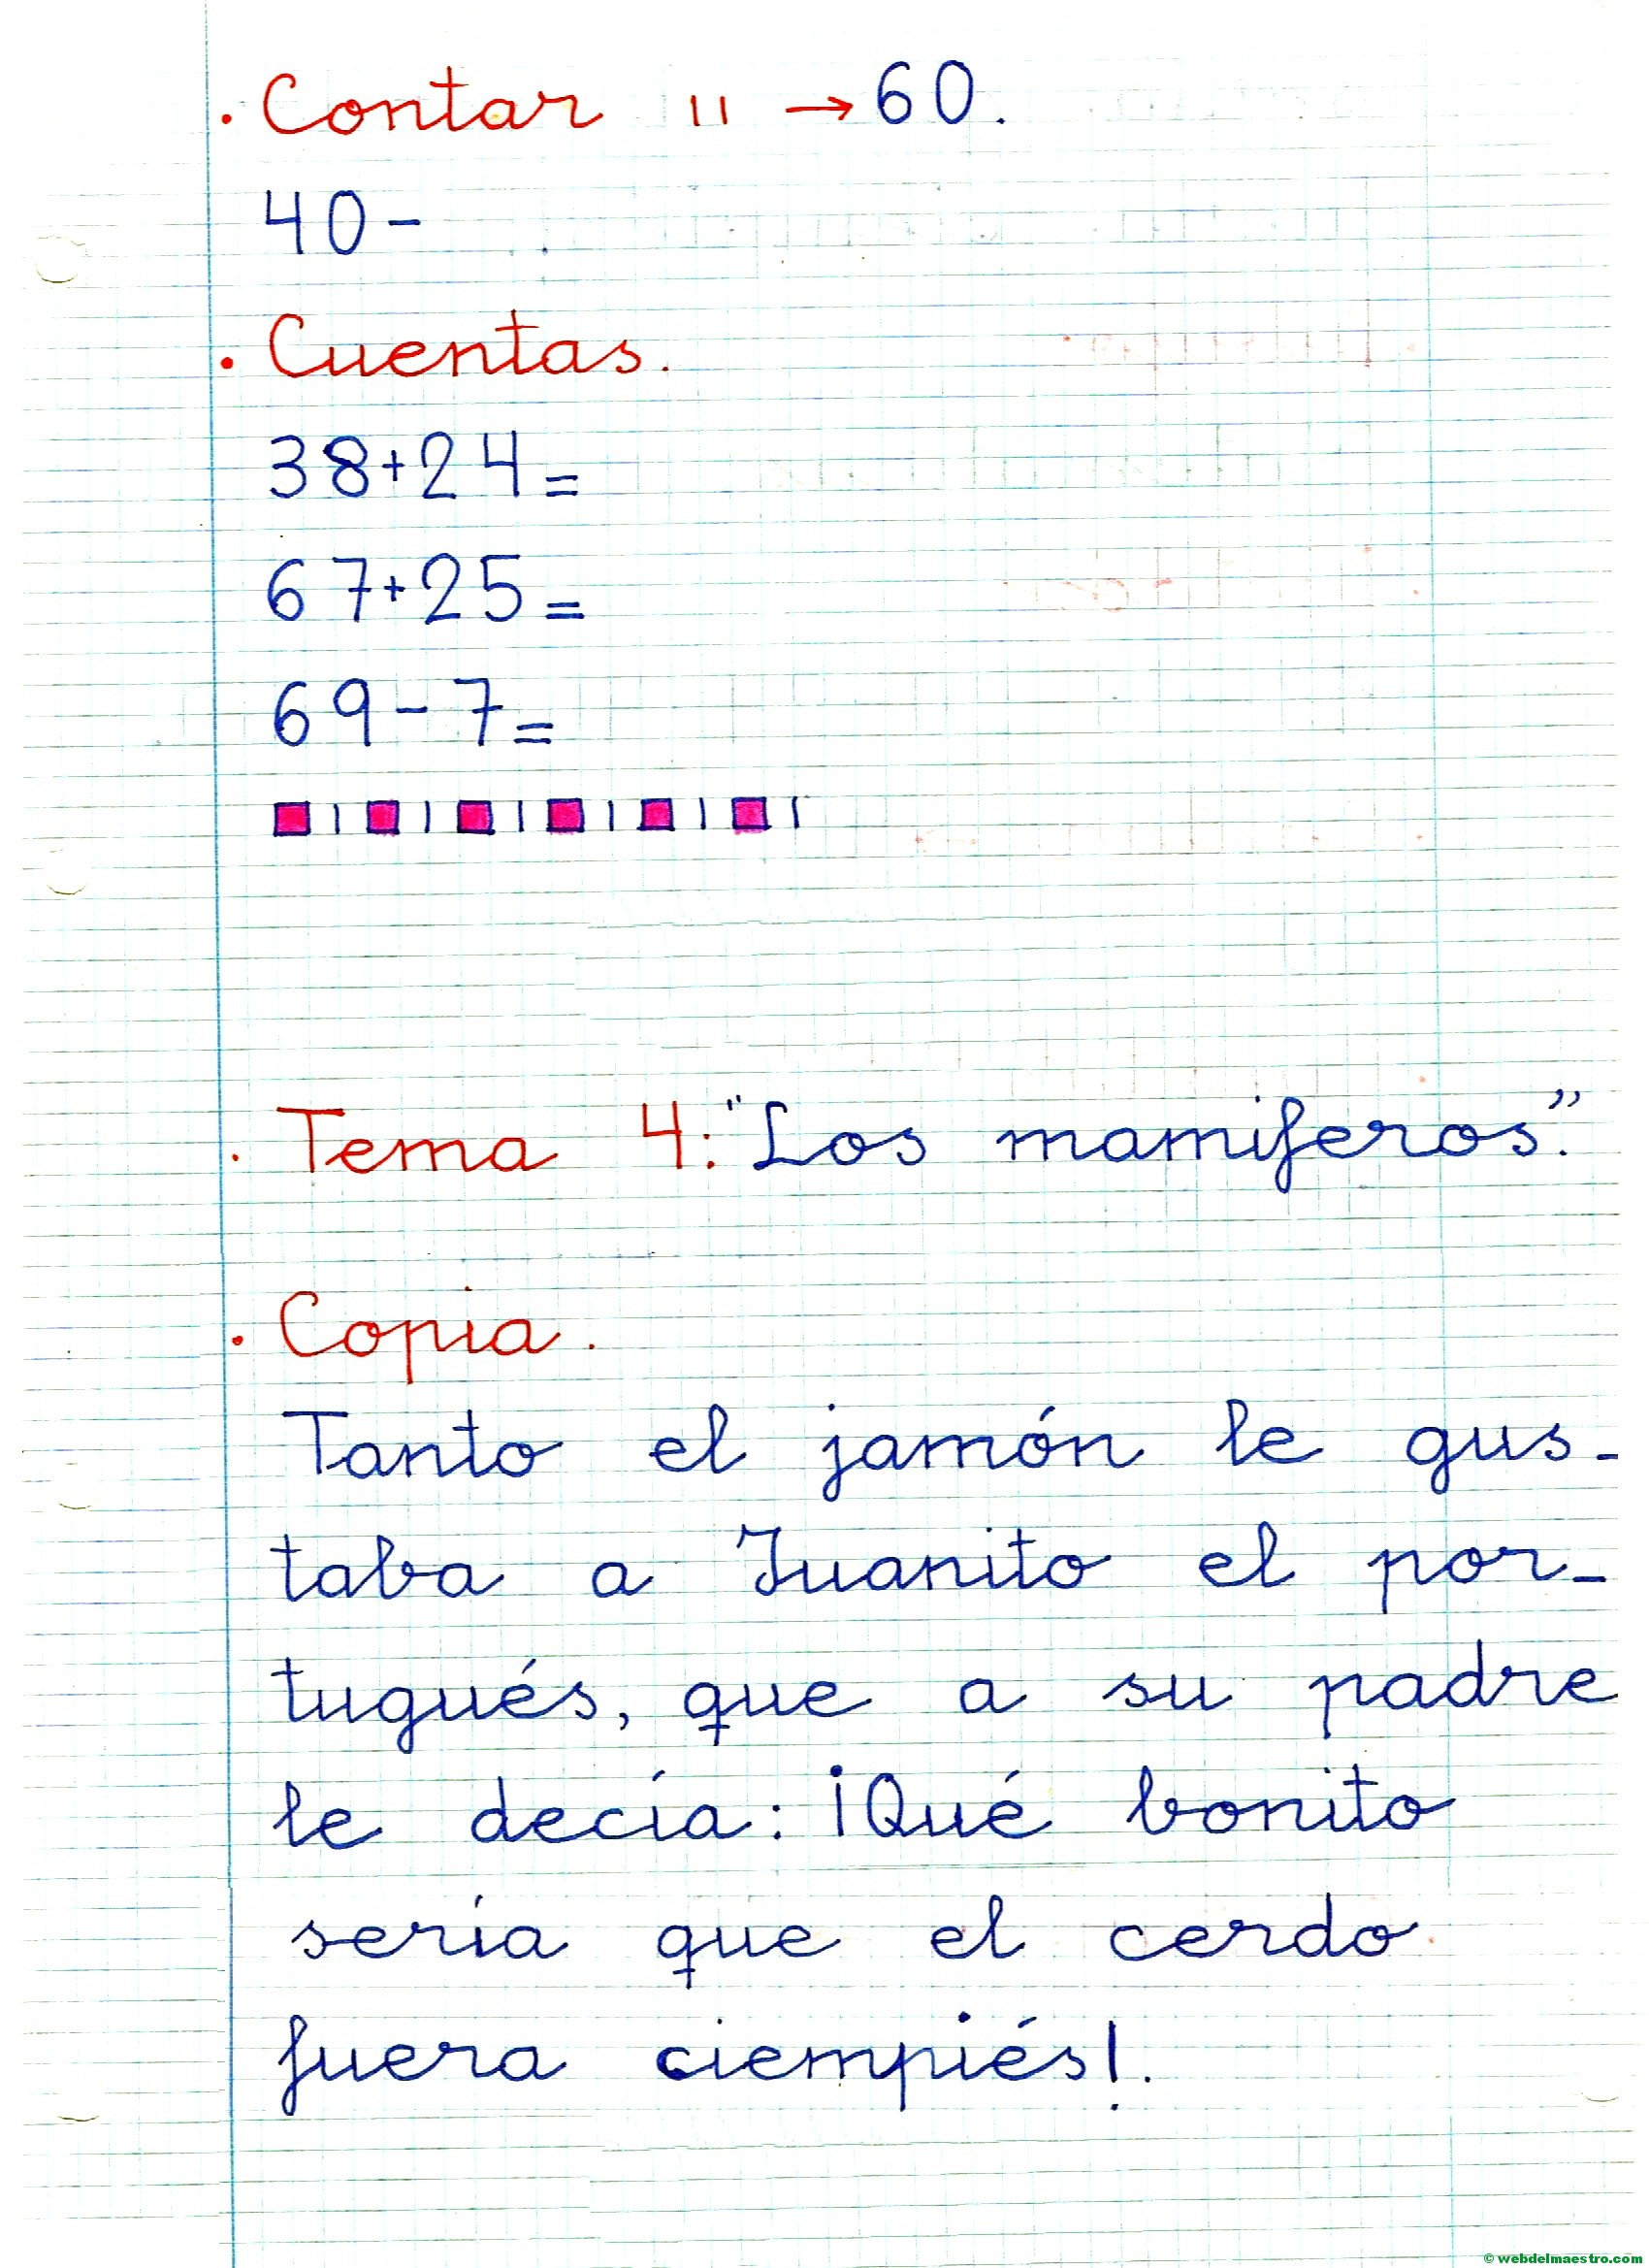 . Contar 11 → 60.
40-
. Cuentas.
38+24=
67+25=
69-7=
. Tema 4: "Los mamiferos".
. Copia.
Tanto el jamón le gus-
taba a Juanito el por-
tugués, que a su padre
le decía: ¡Qué bonito
sería que el cerdo
fuera ciempiés!.
© webdelmaestro.com